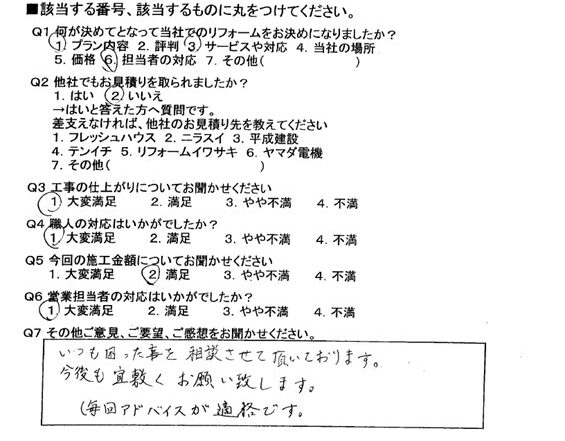 ■該当する番号、該当するものに丸をつけてください。
Q1 何が決めてとなって当社でのリフォームをお決めになりましたか？
1. プラン内容 2. 評判 3. サービスや対応 4. 当社の場所
5. 価格 6. 担当者の対応 7. その他( )
Q2 他社でもお見積りを取られましたか？
1. はい 2. いいえ
→はいと答えた方へ質問です。
差支えなければ、他社のお見積り先を教えてください
1. フレッシュハウス 2. ニラスイ 3. 平成建設
4. テンイチ 5. リフォームイワサキ 6. ヤマダ電機
7. その他( )
Q3 工事の仕上がりについてお聞かせください
1. 大変満足 2. 満足 3. やや不満 4. 不満
Q4 職人の対応はいかがでしたか？
1. 大変満足 2. 満足 3. やや不満 4. 不満
Q5 今回の施工金額についてお聞かせください
1. 大変満足 2. 満足 3. やや不満 4. 不満
Q6 営業担当者の対応はいかがでしたか？
1. 大変満足 2. 満足 3. やや不満 4. 不満
Q7 その他ご意見、ご要望、ご感想をお聞かせください。
いつも困った事を 相談させて頂いております。
今後も宜敷く お願い致します。
(毎回アドバイスが適格です。